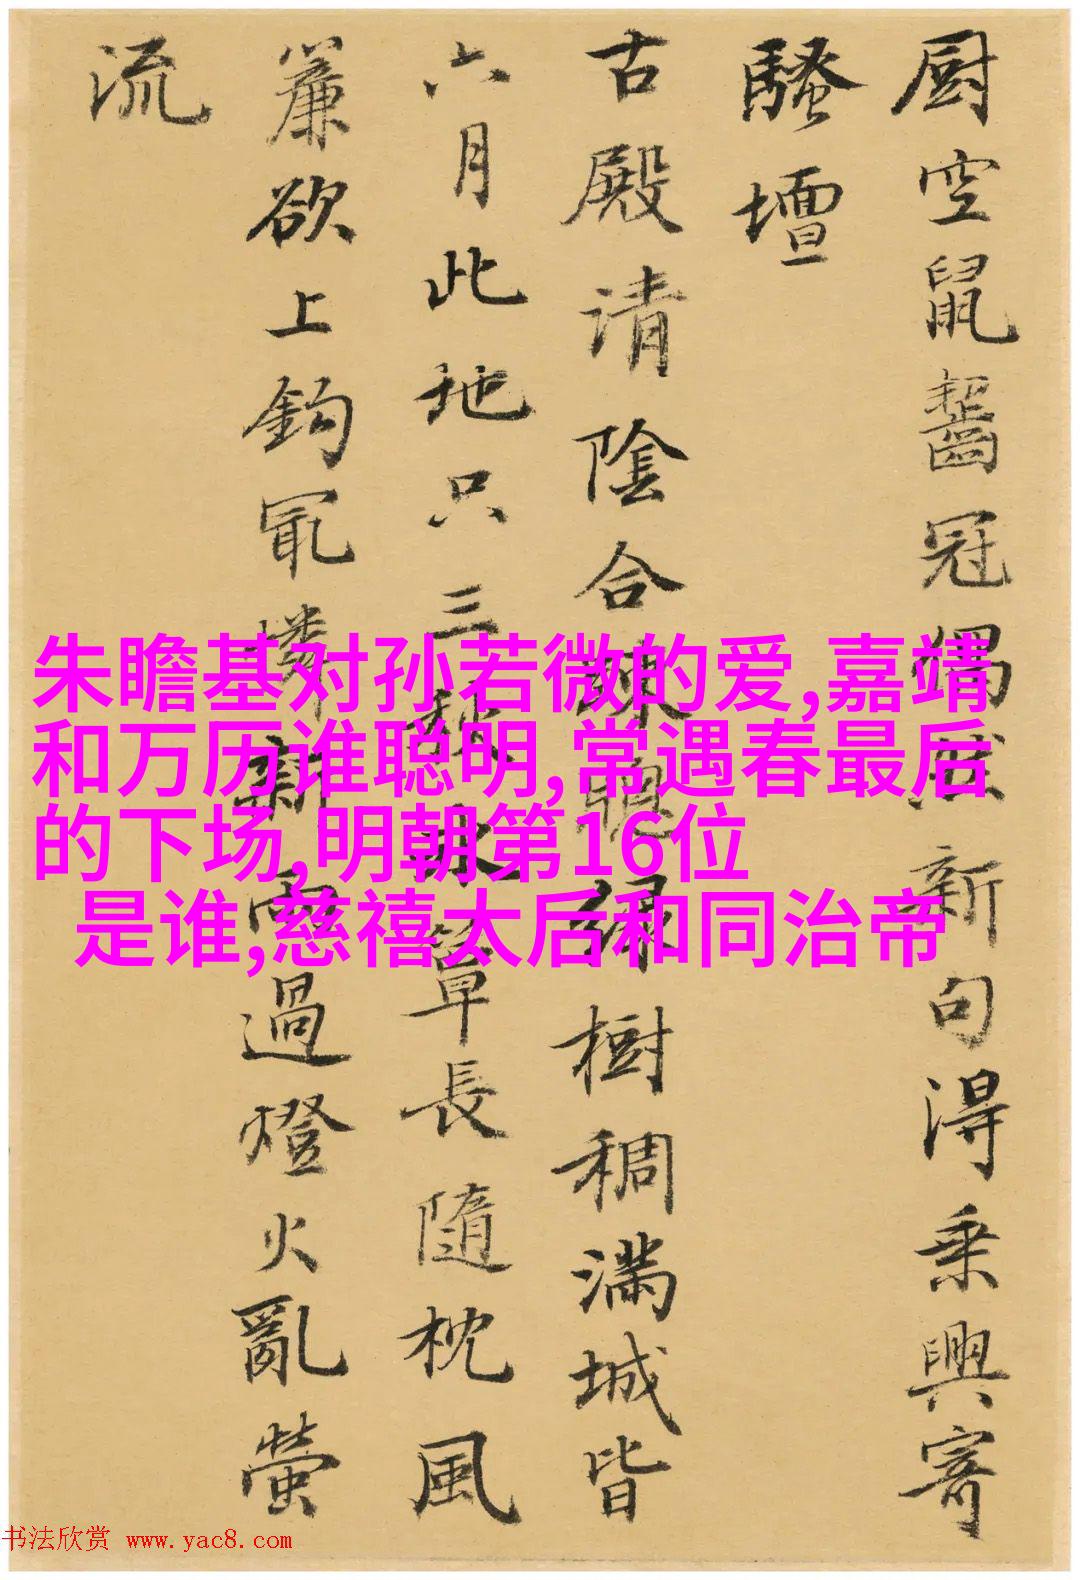 厨空鼠齧冠獨新句得乘興寄
騷壇
古殿清陰合疎緑樹稠滿城皆
六月此地只三秋簟長隨枕風
簾欲上鈎冣憐新雨過燈火亂螢
流
朱瞻基对孙若微的爱,嘉靖
和万历谁聪明,常遇春最后
的下场,明朝第16位
是谁,慈禧太后和同治帝
书法欣赏 www.yac8.com